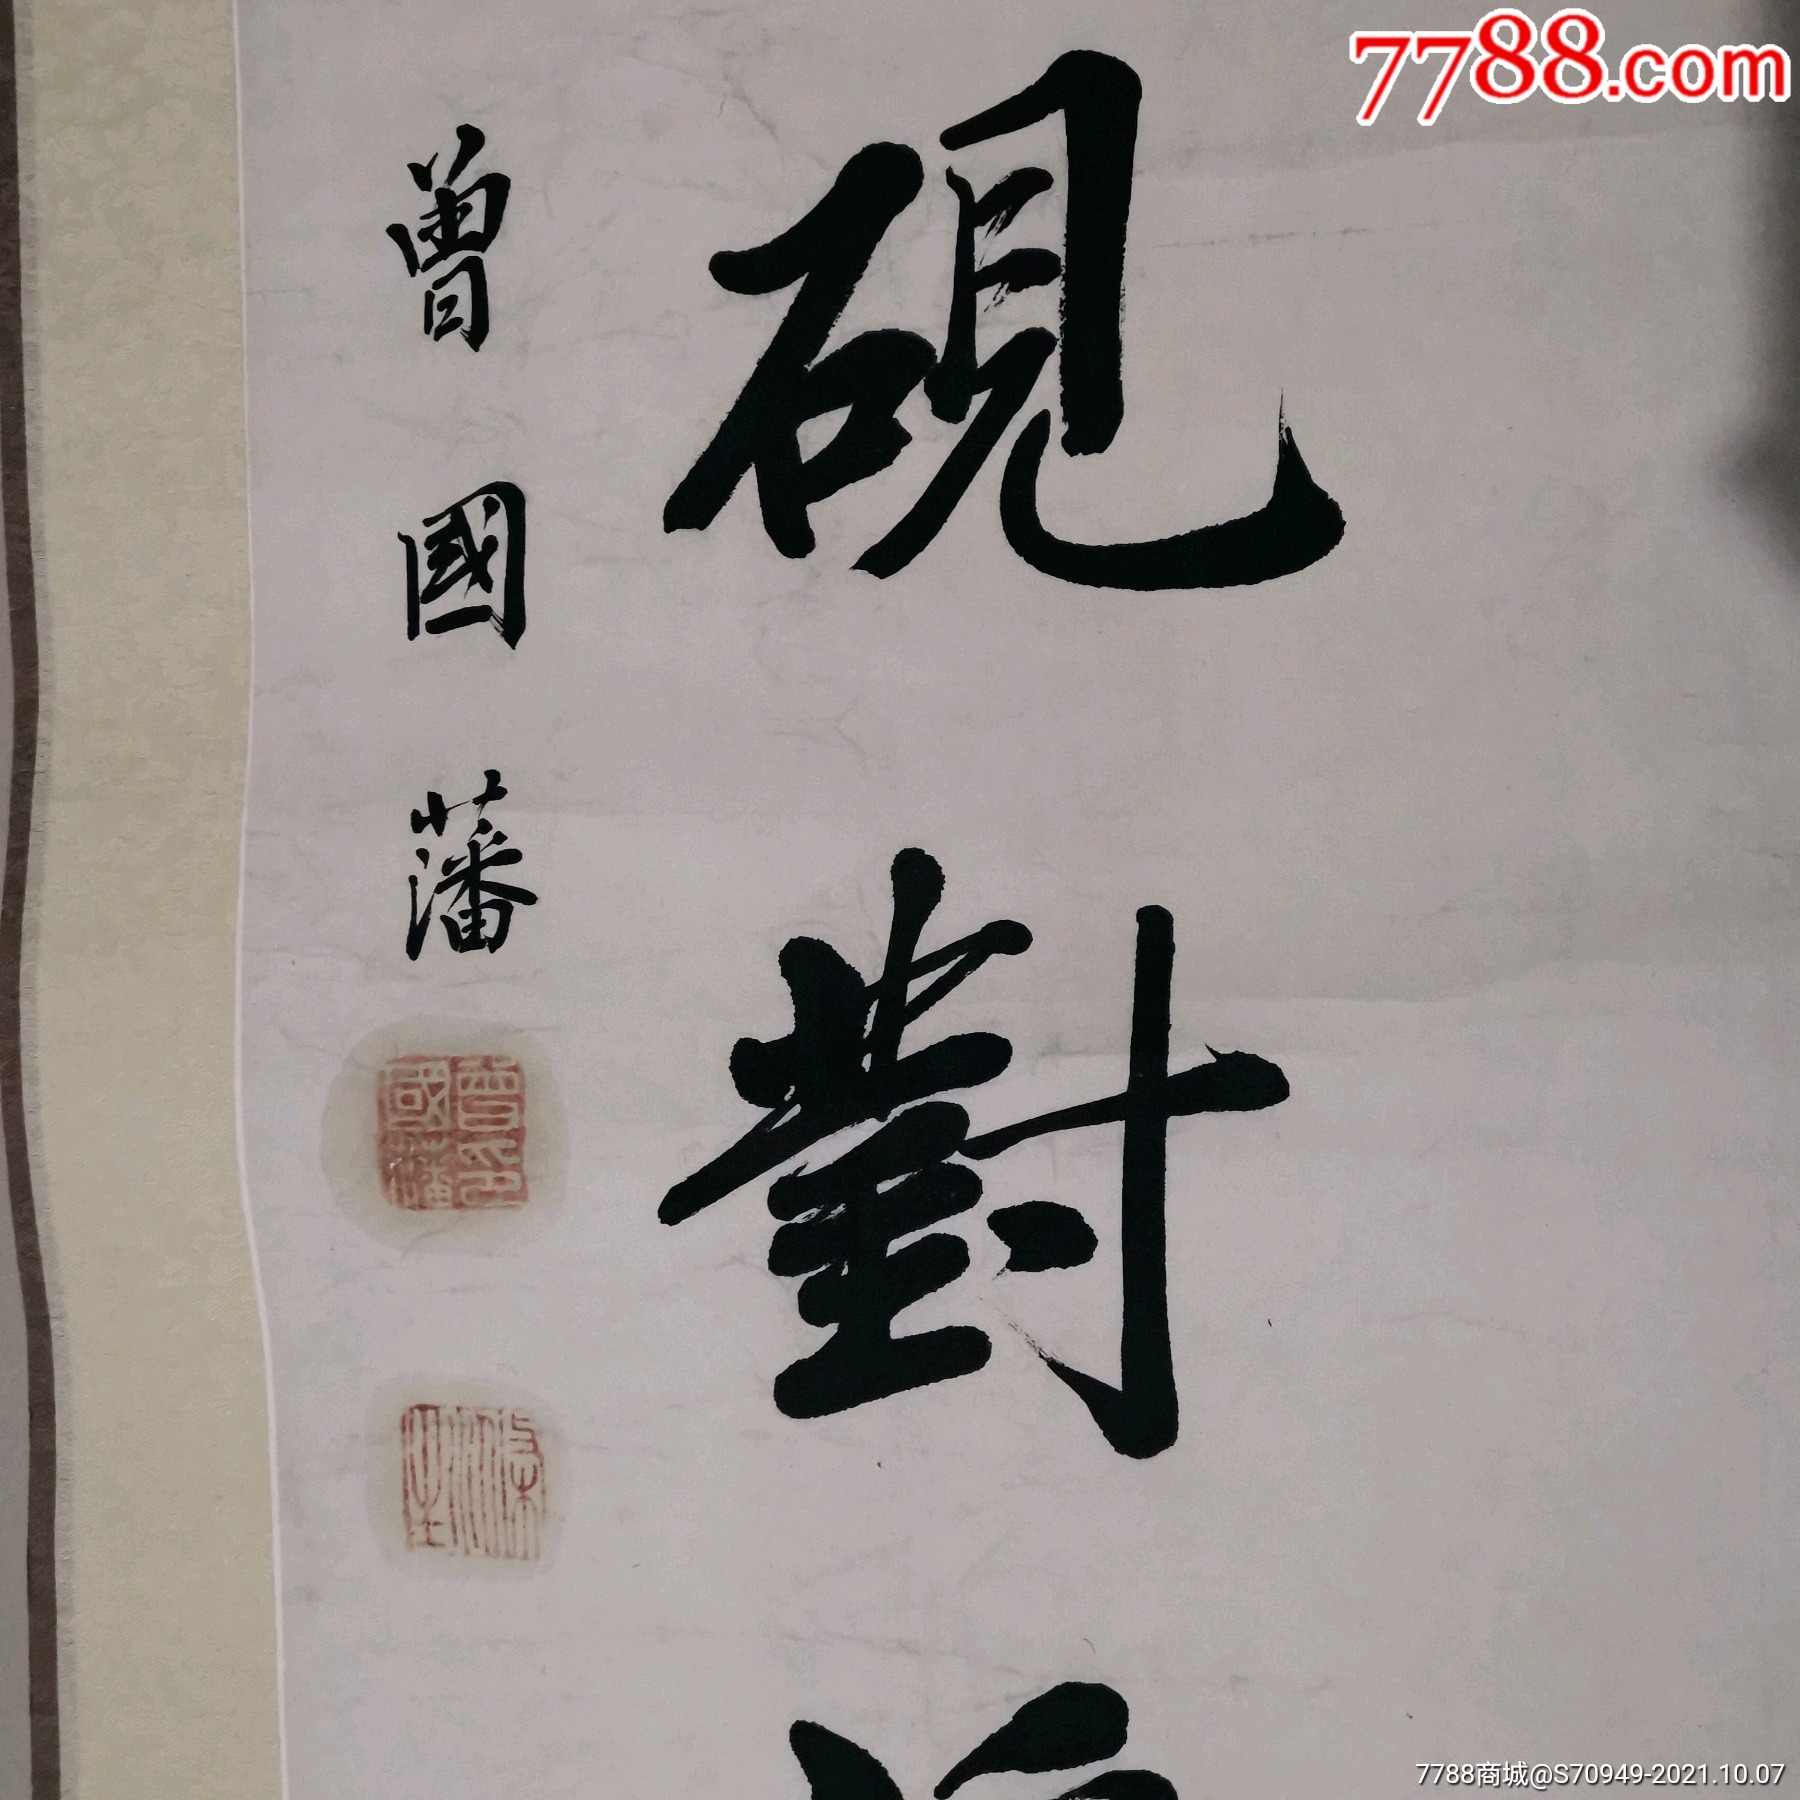 7788.com
硯對
曾國藩
曾印國藩
7788商城@S70949-2021.10.07